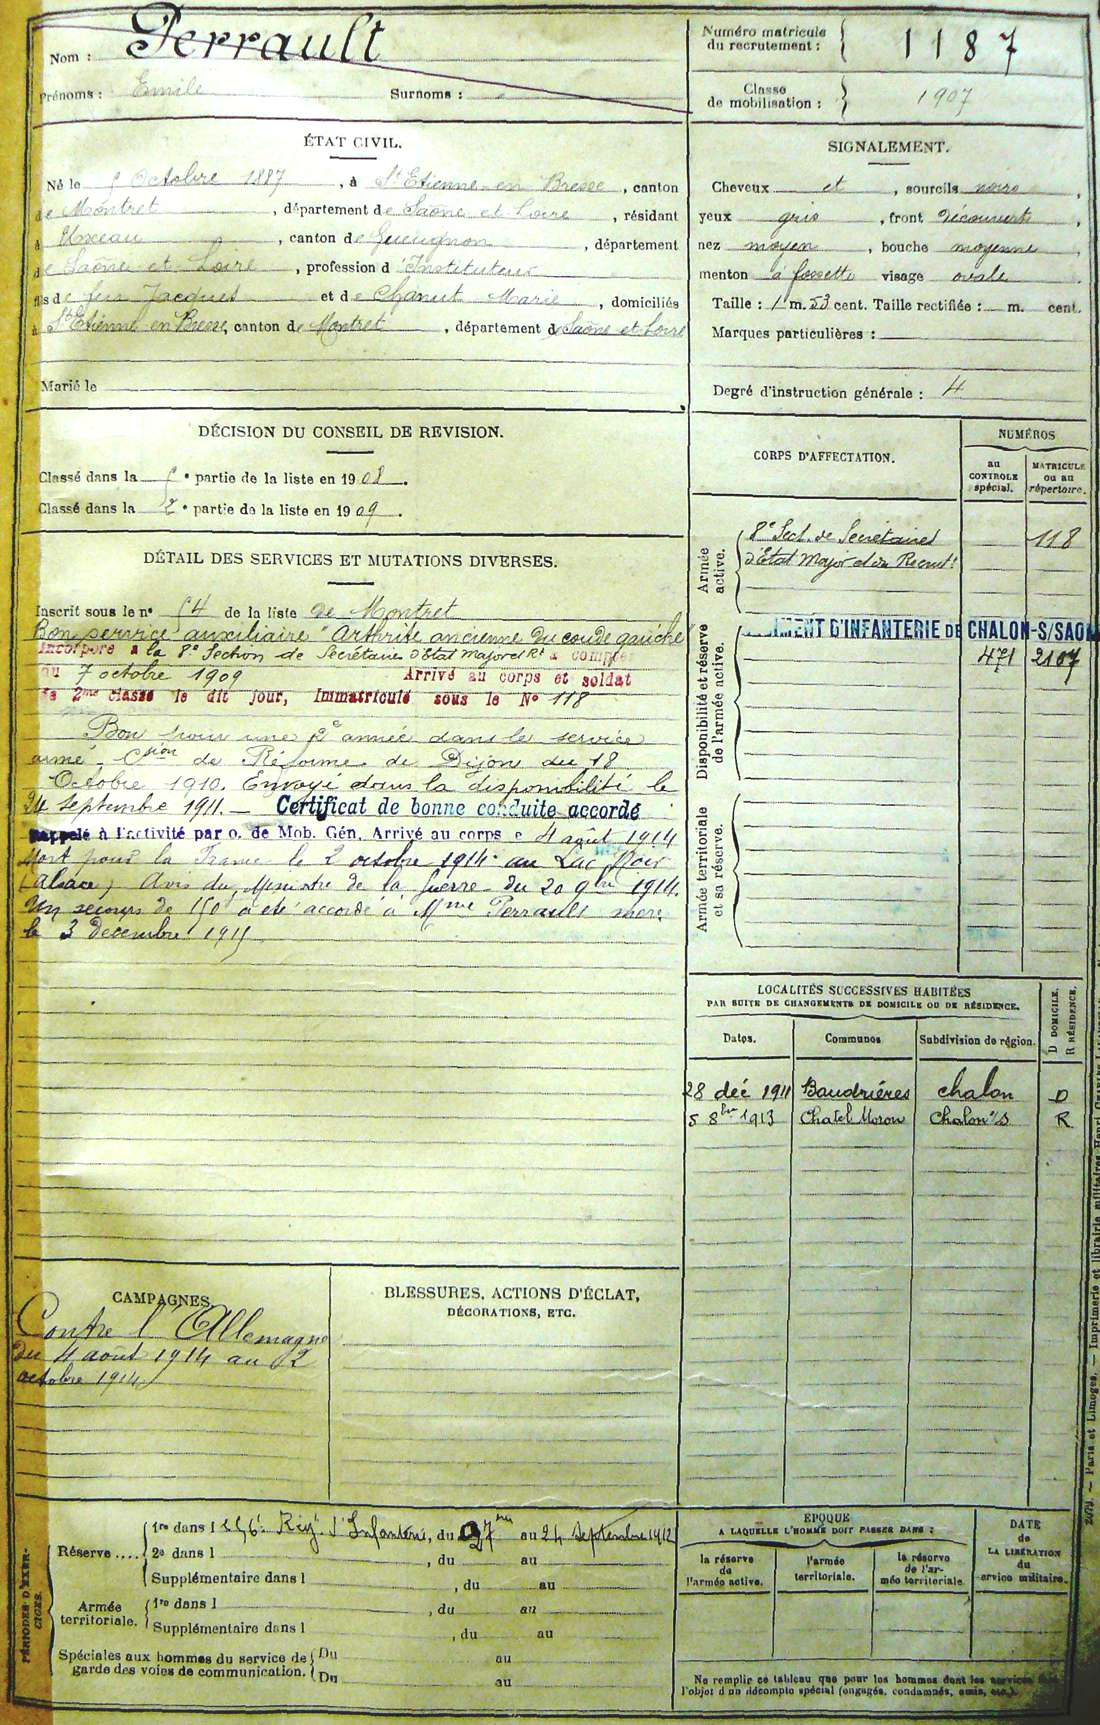 Nom : Perrault
Prénoms : Emile Surnoms :
Numéro matricule
du recrutement : 1187
Classe
de mobilisation : 1907
ÉTAT CIVIL.
Né le 5 Octobre 1887, à St Etienne en Bresse, canton
de Montret, département de Saône et Loire, résidant
à Uxeau, canton de Gueugnon, département
de Saône et Loire, profession d'Instituteur
fils de feu Jacques et de Chanut Marie, domiciliés
à St Etienne en Bresse, canton de Montret, département de Saône et Loire
Marié le
SIGNALEMENT.
Cheveux et, sourcils noirs,
yeux gris, front découvert,
nez moyen, bouche moyenne,
menton à fossette visage ovale
Taille : 1 m. 53 cent. Taille rectifiée : m. cent.
Marques particulières :
Degré d'instruction générale : 4
DÉCISION DU CONSEIL DE REVISION.
Classé dans la 5e partie de la liste en 1908.
Classé dans la 2e partie de la liste en 1909.
DÉTAIL DES SERVICES ET MUTATIONS DIVERSES.
Inscrit sous le no 54 de la liste de Montret
Bon service auxiliaire "Arthrite ancienne du coude gauche"
Incorporé à la 8e Section de Secrétaires d'Etat Major et Rt à compter
du 7 octobre 1909 Arrivé au corps et soldat
de 2me classe le dit jour, Immatriculé sous le No 118
Bon pour une 2e année dans le service
armé - Csion de Réforme de Dijon du 18
Octobre 1910. Envoyé dans la disponibilité le
24 septembre 1911. - Certificat de bonne conduite accordé
Rappelé à l'activité par o. de Mob. Gén. Arrivé au corps le 4 août 1914
Mort pour la France le 2 octobre 1914 au Lac Noir
(Alsace) Avis du Ministre de la Guerre du 20 9bre 1914.
Un secours de 150f a été accordé à Mme Perrault mère
le 3 décembre 1915
CORPS D'AFFECTATION.
NUMÉROS
au
CONTROLE
spécial.
MATRICULE
ou au
répertoire.
Armée
active.
8e Sect. de Secrétaires 118
d'Etat Major et du Recrutt
Disponibilité et réserve
de l'armée active.
RÉGIMENT D'INFANTERIE DE CHALON-S/SAÔNE
471 2107
Armée territoriale
et sa réserve.
LOCALITÉS SUCCESSIVES HABITÉES
PAR SUITE DE CHANGEMENTS DE DOMICILE OU DE RÉSIDENCE.
Dates. Communes Subdivision de région. D DOMICILE. R RÉSIDENCE.
28 déc 1911 Baudrières chalon D
5 8bre 1913 Chatel Moron Chalon s/s R
CAMPAGNES
Contre l'Allemagne
du 4 août 1914 au 2
octobre 1914
BLESSURES, ACTIONS D'ÉCLAT,
DÉCORATIONS, ETC.
PÉRIODES D'EXERCICES.
Réserve .... 1re dans l 256e Régt d'Infanterie, du au 24 septembre 1912
2e dans l , du au
Supplémentaire dans l , du au
Armée
territoriale. 1re dans l , du au
Supplémentaire dans l , du au
Spéciales aux hommes du service de
garde des voies de communication. Du au
Du au
EPOQUE
A LAQUELLE L'HOMME DOIT PASSER DANS :
la réserve
de
l'armée active.
l'armée
territoriale.
la réserve
de l'ar-
mée territoriale.
DATE
de
LA LIBÉRATION
du
service militaire.
Ne remplir ce tableau que pour les hommes dont les services
l'objet d'un décompte spécial (engagés, condamnés, omis, etc.).
Paris et Limoges. — Imprimerie et librairie militaires Henri